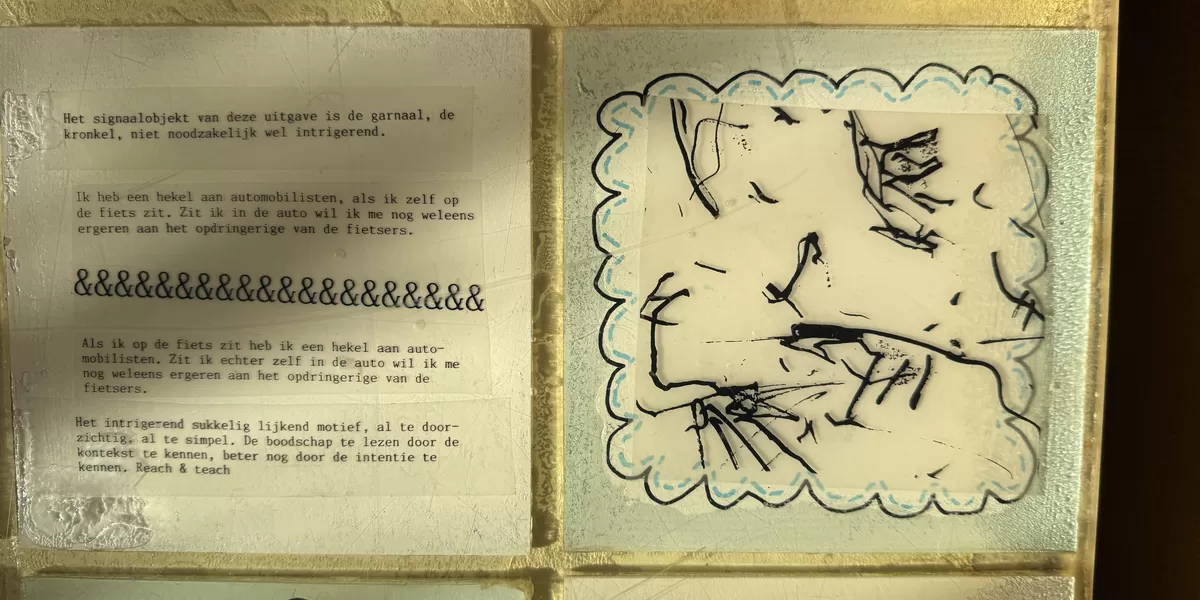 Het signaalobjekt van deze uitgave is de garnaal, de
kronkel, niet noodzakelijk wel intrigerend.
Ik heb een hekel aan automobilisten, als ik zelf op
de fiets zit. Zit ik in de auto wil ik me nog weleens
ergeren aan het opdringerige van de fietsers.
&&&&&&&&&&&&&&&&&&&&
Als ik op de fiets zit heb ik een hekel aan auto-
mobilisten. Zit ik echter zelf in de auto wil ik me
nog weleens ergeren aan het opdringerige van de
fietsers.
Het intrigerend sukkelig lijkend motief, al te door-
zichtig, al te simpel. De boodschap te lezen door de
kontekst te kennen, beter nog door de intentie te
kennen. Reach & teach